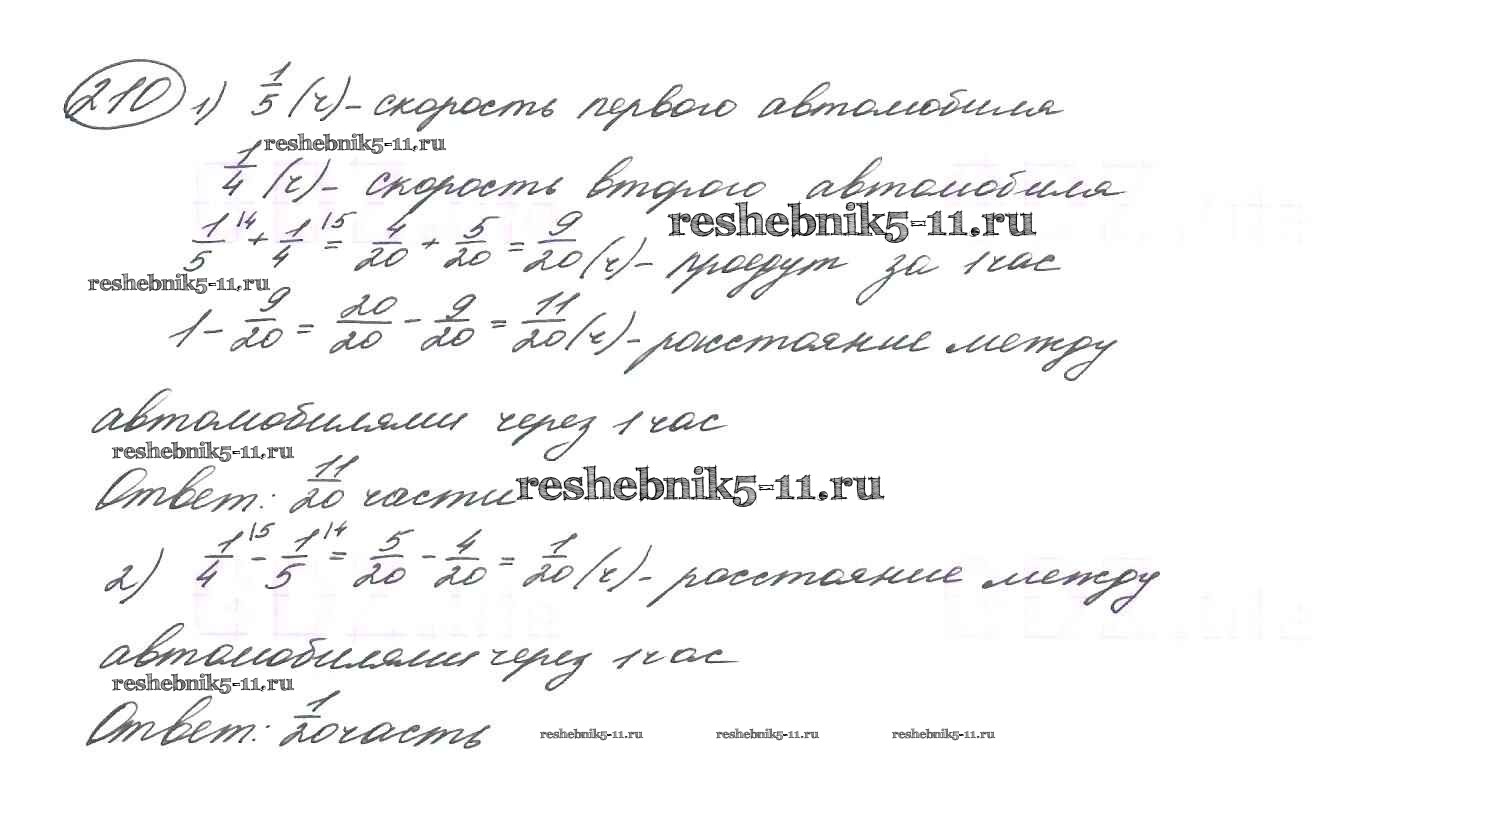 210 1) 1/5 (ч) - скорость первого автомобиля
reshebnik5-11.ru
1/4 (ч) - скорость второго автомобиля
reshebnik5-11.ru
1/5 |4 + 1/4 |5 = 4/20 + 5/20 = 9/20 (ч) - проедут за 1 час
reshebnik5-11.ru
1 - 9/20 = 20/20 - 9/20 = 11/20 (ч) - расстояние между
автомобилями через 1 час
reshebnik5-11.ru
Ответ: 11/20 части
reshebnik5-11.ru
2) 1/4 |5 - 1/5 |4 = 5/20 - 4/20 = 1/20 (ч) - расстояние между
автомобилями через 1 час
reshebnik5-11.ru
Ответ: 1/20 часть
reshebnik5-11.ru reshebnik5-11.ru reshebnik5-11.ru